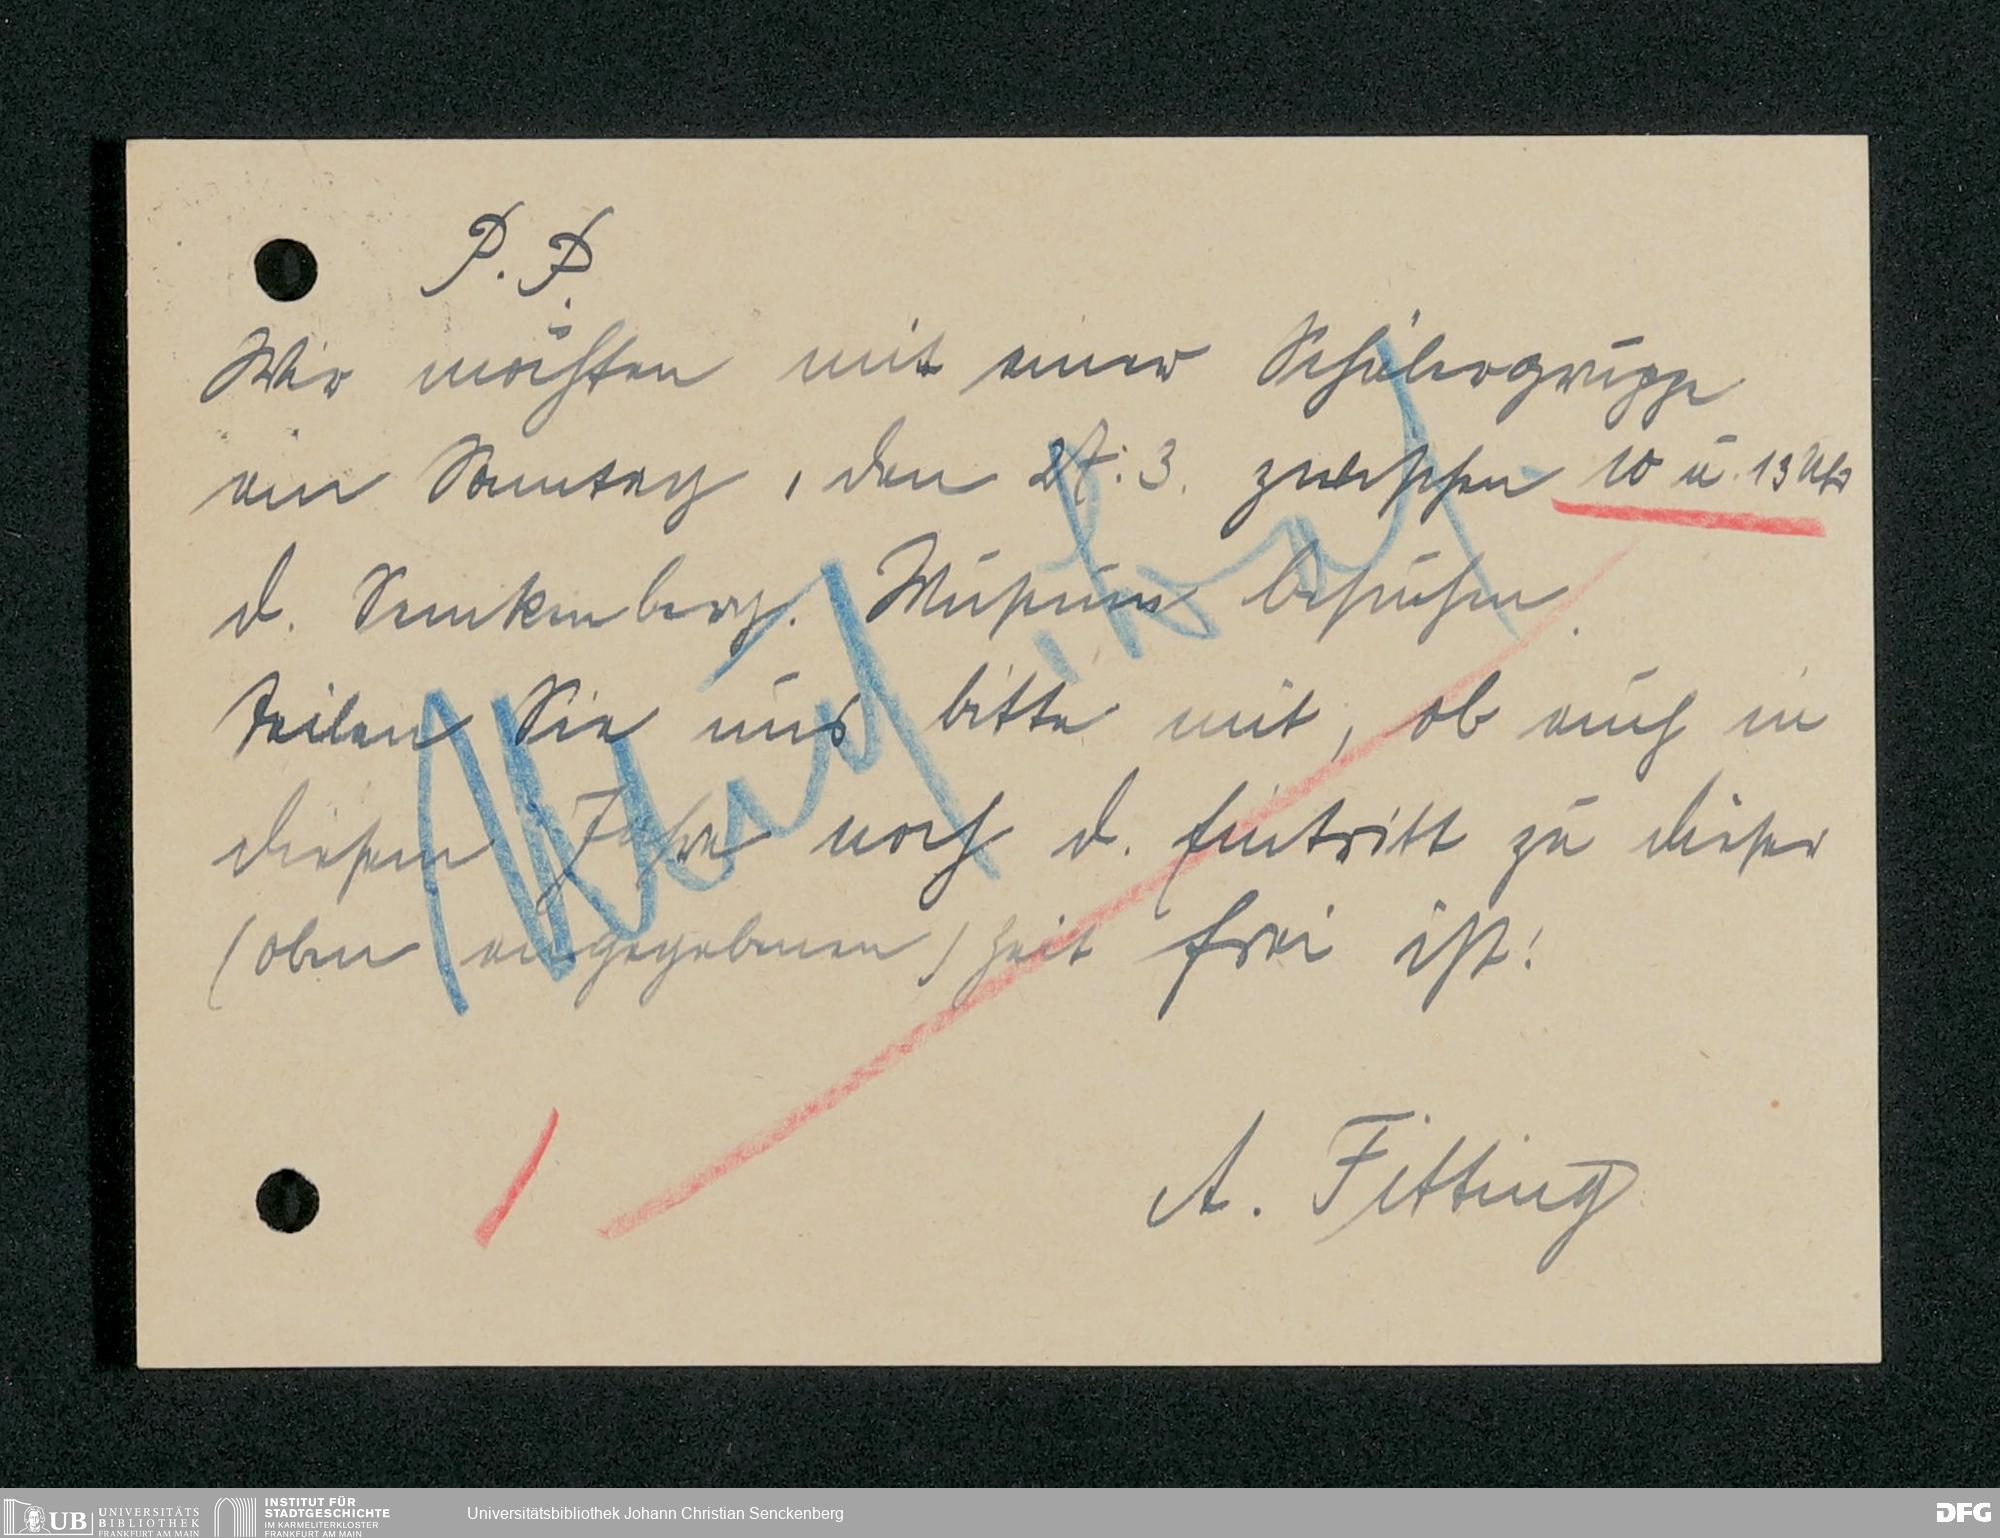 P. P.
Wir möchten mit einer Schülergruppe
am Sonntag, den 27. 3. zwischen 10 u. 13 Uhr
d. Senckenberg. Museum besuchen.
Teilen Sie uns bitte mit, ob auch in
diesem Jahre noch d. Eintritt zu dieser
(oben angegebenen) Zeit frei ist!
A. Fitting
UB UNIVERSITÄTS
BIBLIOTHEK
FRANKFURT AM MAIN
INSTITUT FÜR
STADTGESCHICHTE
IM KARMELITERKLOSTER
FRANKFURT AM MAIN
Universitätsbibliothek Johann Christian Senckenberg
DFG